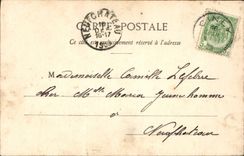 CARTE POSTALE
Ce côté est exclusivement réservé à l'adresse
NEUFCHATEAU
16-17
Mademoiselle Camille Lefebvre
chez Mlle Maria Jeunehomme
à
Neufchateau